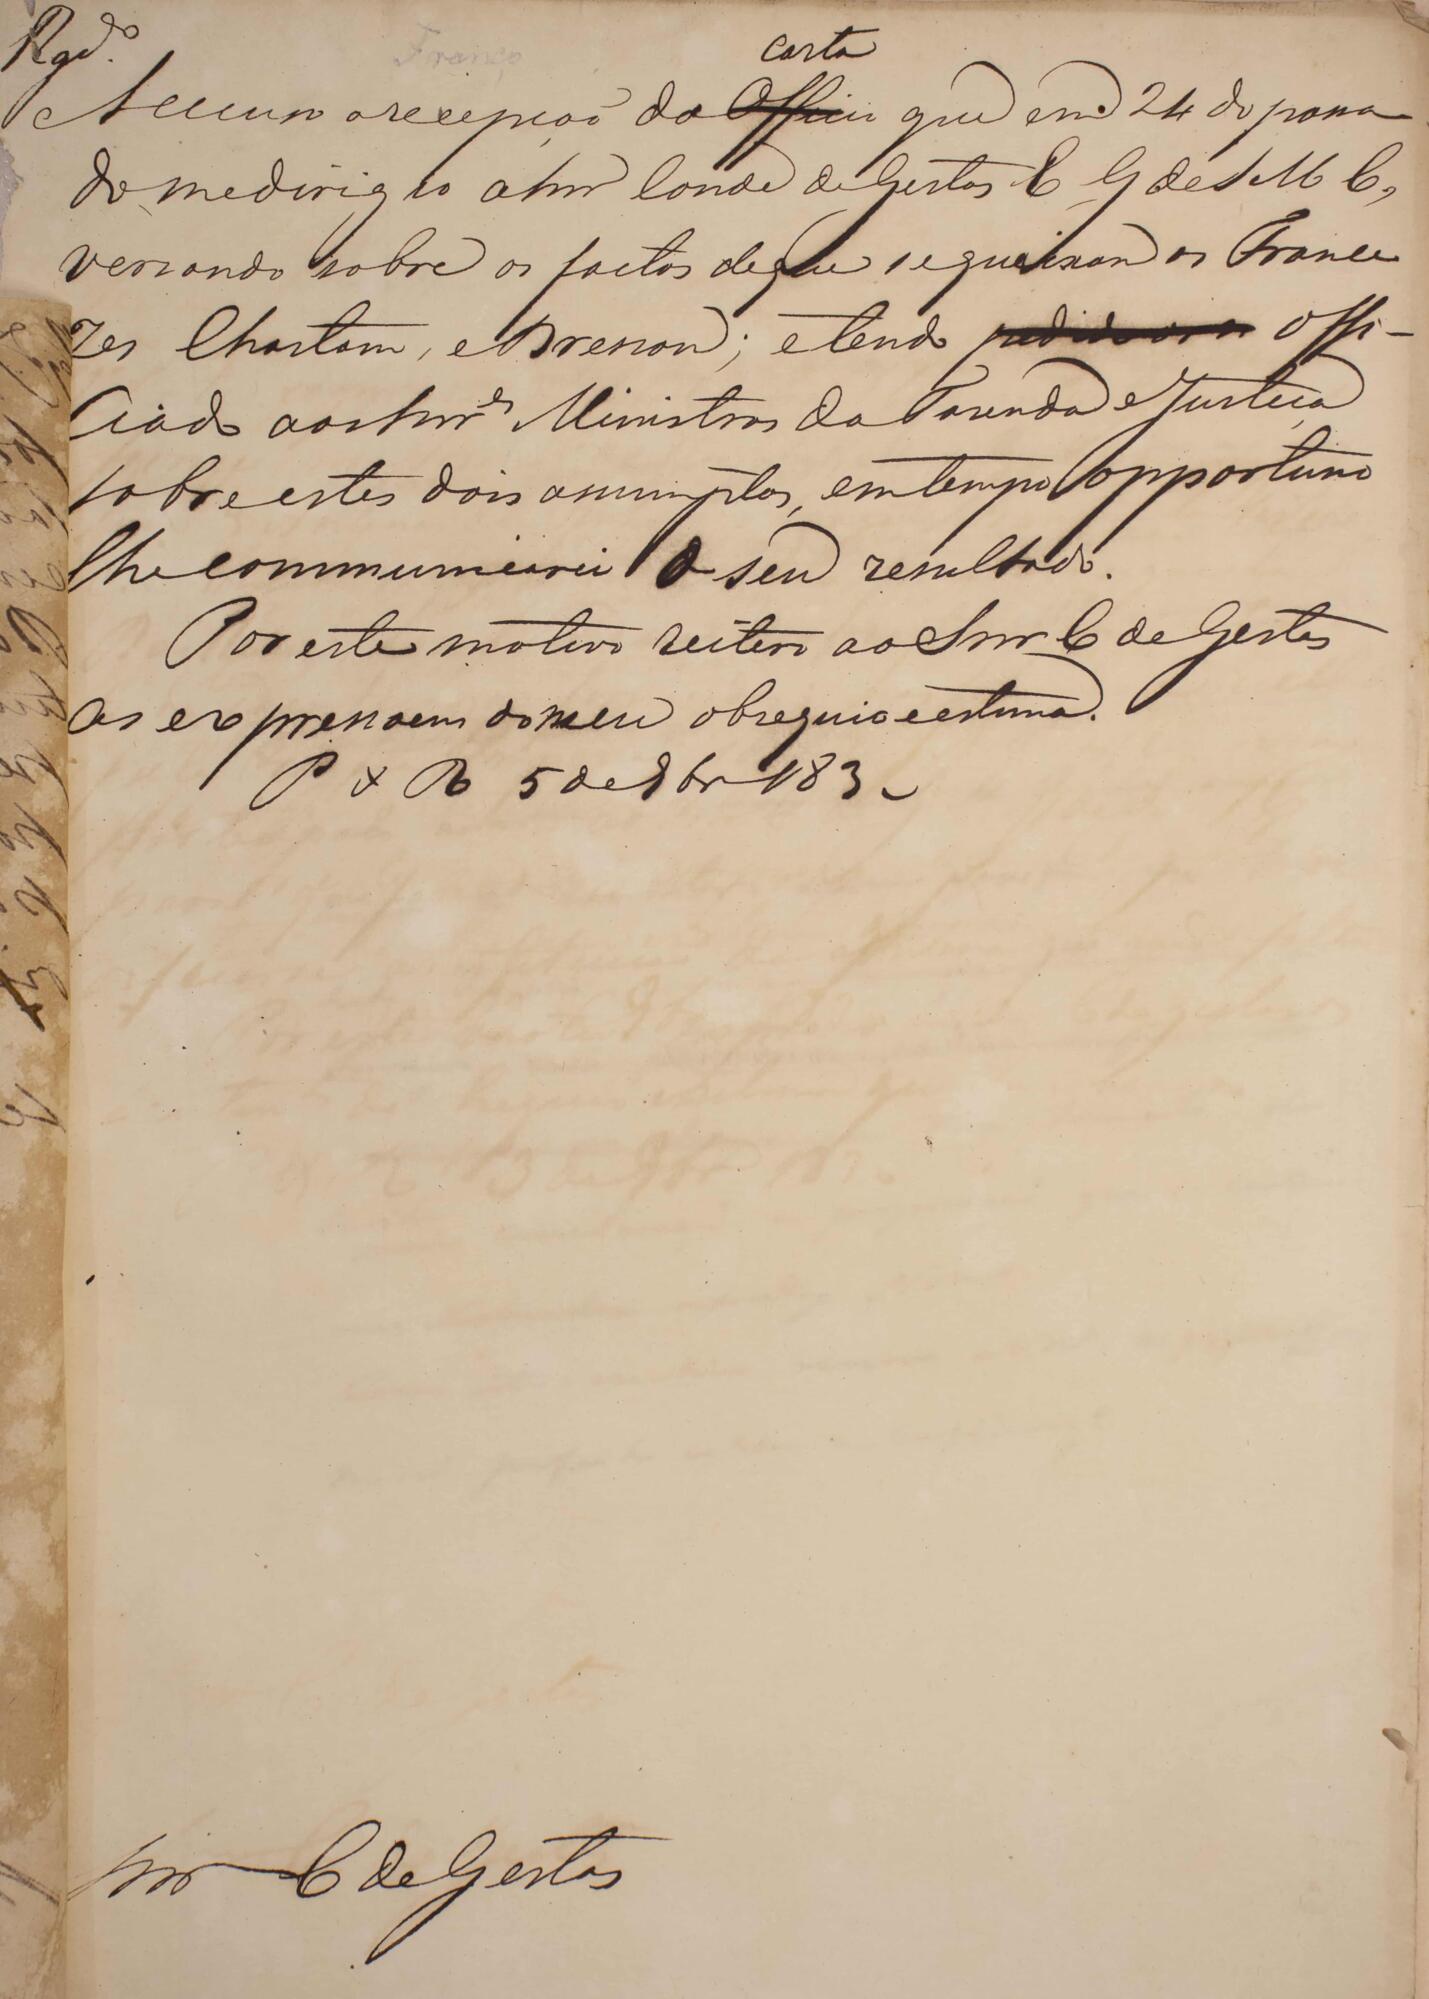 Rgd.º
França
carta
Accuso a recepção da Officio que em 24 do passa
do me dirigio o Snr Conde de Gestas E. G de S M C,
versando sobre os factos de que se queixão os France
zes Chastam, e Bresson; e tendo offi-
ciado aos Snr.es Ministros da Fazenda e Justiça
sobre estes dois assumptos, em tempo opportuno
lhe communicarei o seu resultado.
Por este motivo reitero ao Snr C de Gestas
as expressoens do meu obsequio e estima.
P x R 5 de 8br 183
Snr C de Gestas